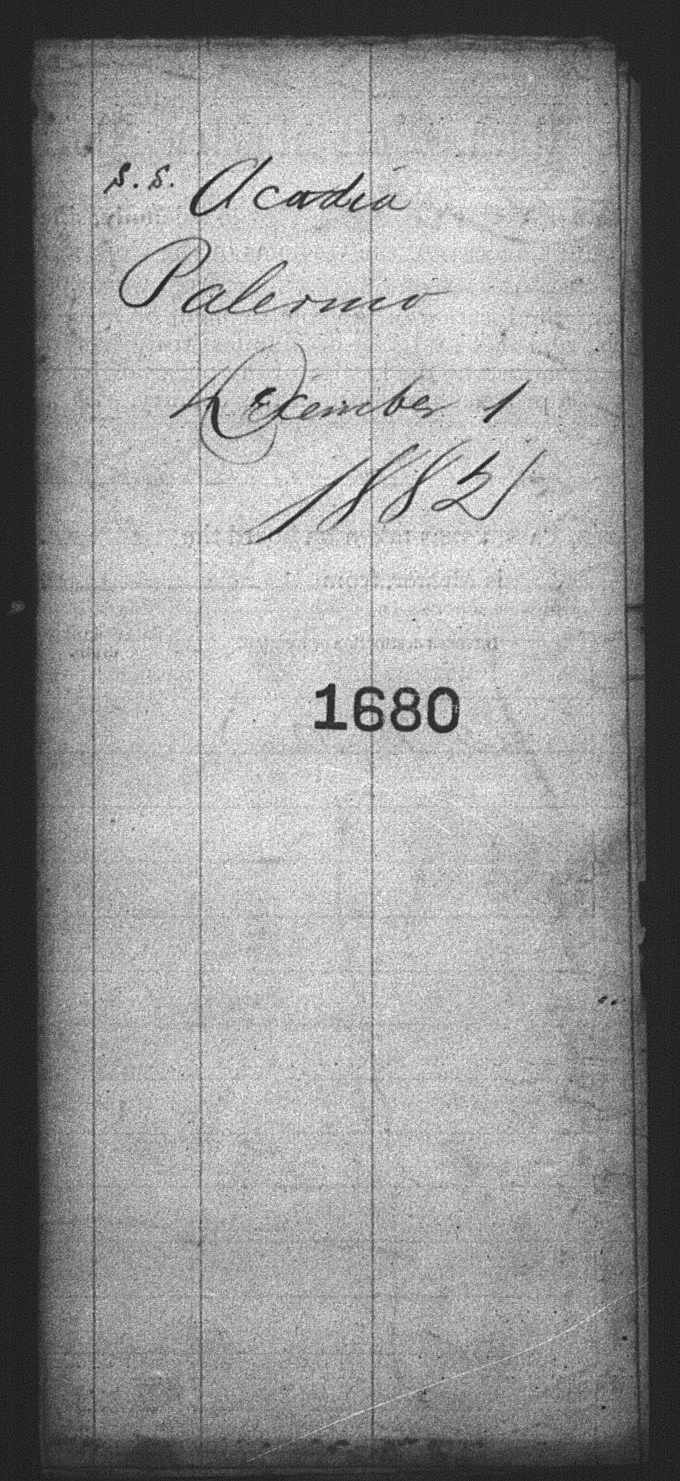 S.S. Acadia
Palermo
December 1
1882
1680